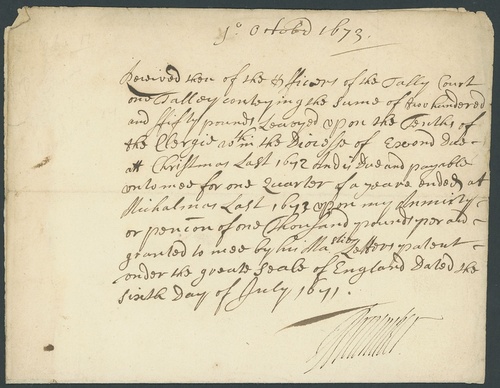 1o Octobr 1673.
Received then of the Officers of the Tally Court
one Talley conteyning the sume of two hundered
and fifty pounds Leavyed upon the Tenths of
the Clergie within the Diocese of Exond Due
att Christmas Last 1672 and is Due and payable
unto mee for one Quarter of a yeare ended at
Michalmas Last 1673 upon my Annuity
or pencon of one Thousand pounds per ann
granted to mee by his Matie Letters patent
under the greate Seale of England Dated the
Sixth Day of July 1671.